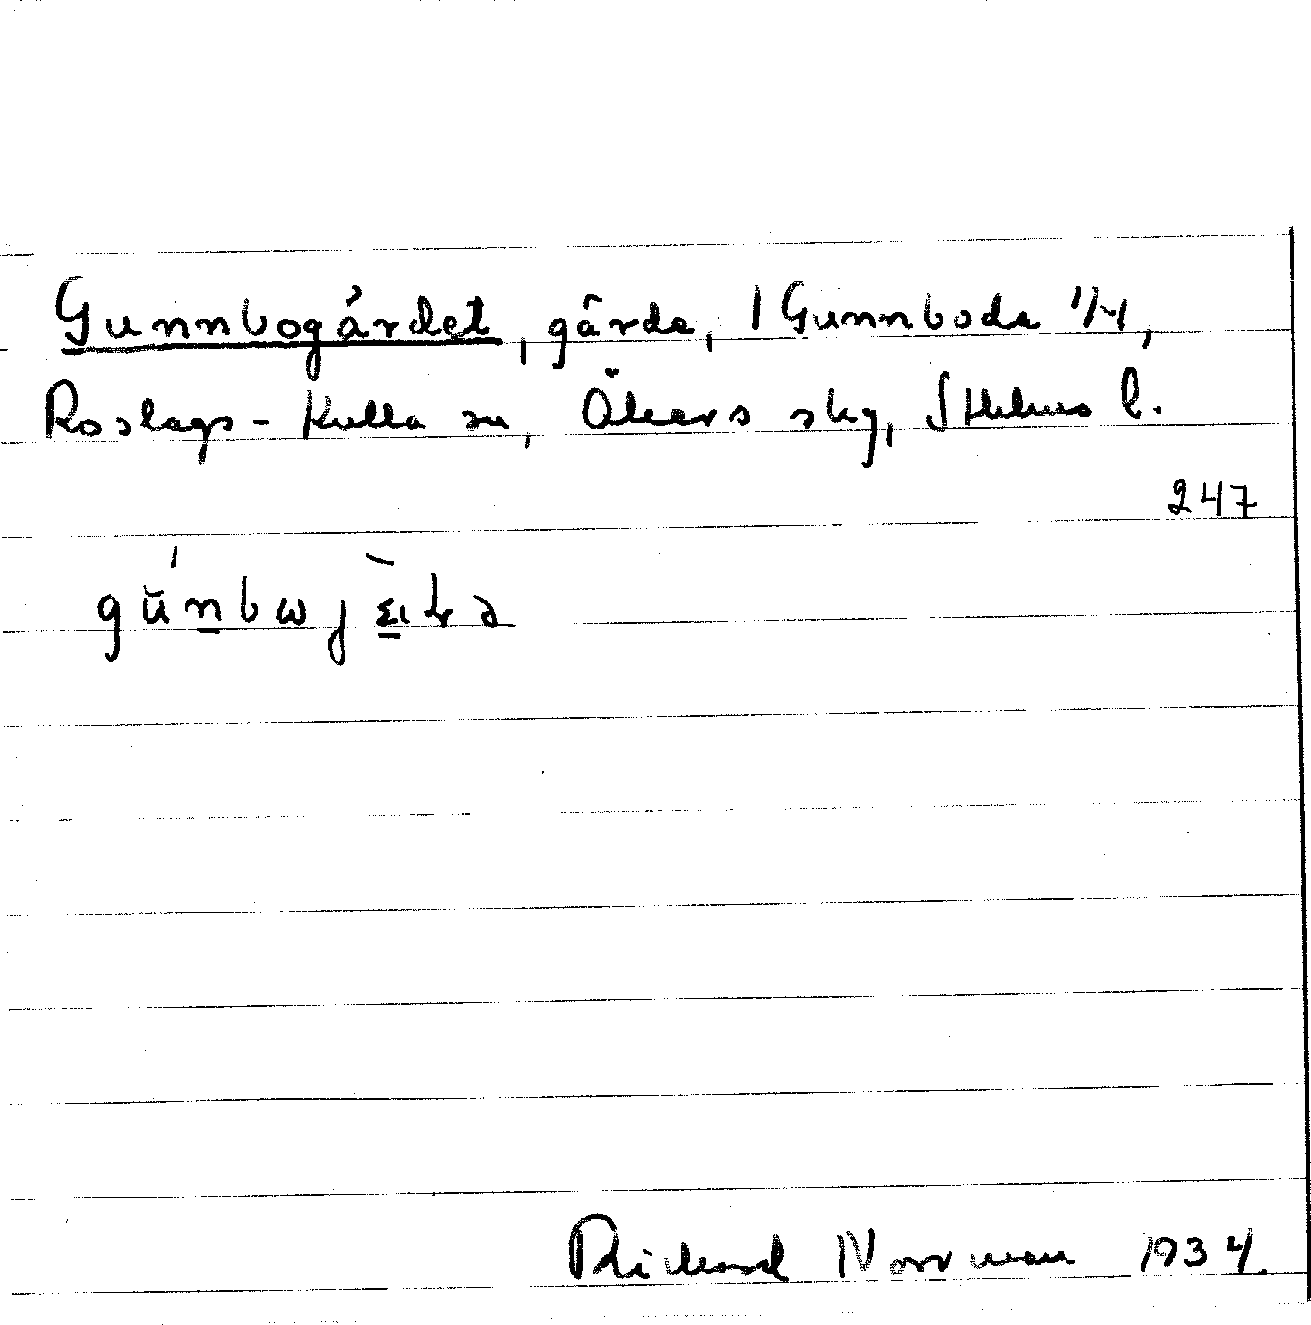 Gunnbogärdet, gärde, i Gunnboda 1/4,
Roslags-Kulla sn, Åkers skg, Sthlms l.
247
Rickard Norrman 1934.